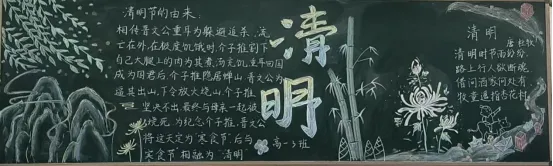 清明节的由来:
相传晋文公重耳为躲避追杀,流
亡在外,在极度饥饿时,介子推割下
自己大腿上的肉为其煮汤充饥,重耳回国
成为国君后,介子推隐居绵山,晋文公为
逼其出山,下令放火烧山,介子推
坚决不出,最终与母亲一起被
烧死,为纪念介子推,晋文公
将这天定为"寒食节",后与
寒食节相融为"清明
清明
高一3班
清明
唐 杜牧
清明时节雨纷纷,
路上行人欲断魂。
借问酒家何处有,
牧童遥指杏花村。